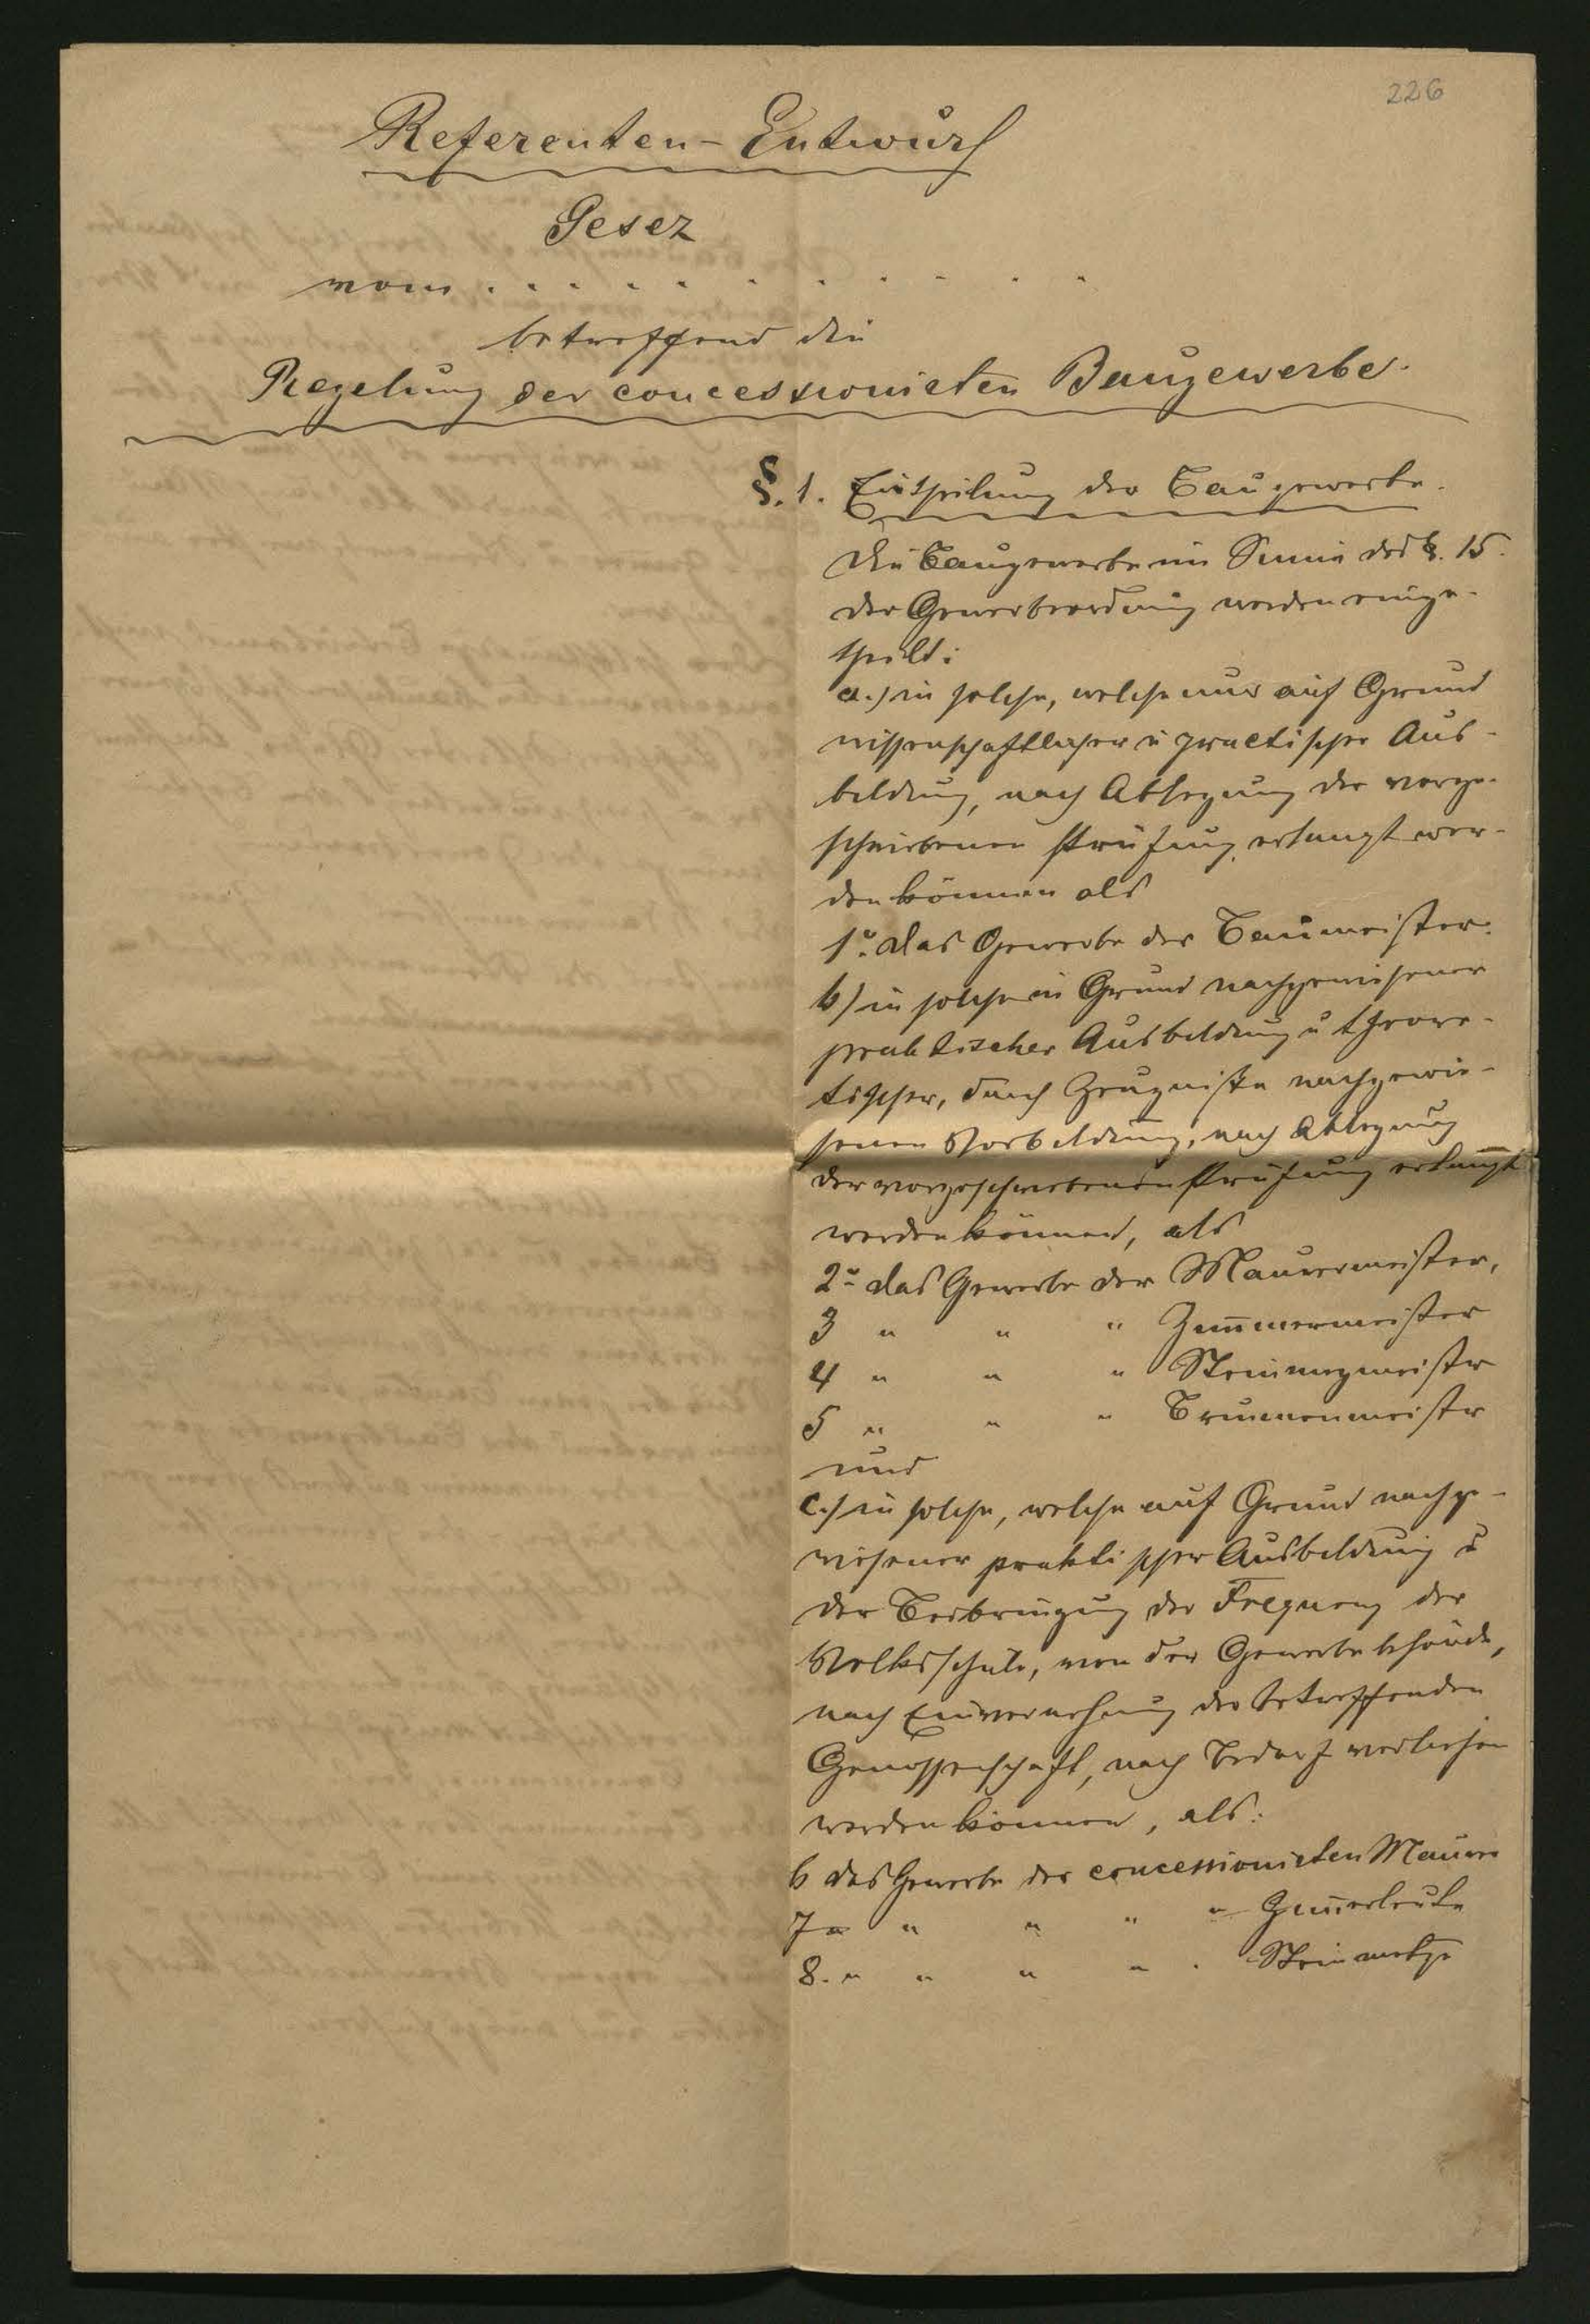 226
Referenten-Entwurf
Gesez
vom . . . . . . . . . .
betreffend die
Regelung der concessionirten Baugewerbe.
§. 1. Eintheilung der Baugewerbe.
Die Baugewerbe im Sinne des §. 15.
der Gewerbeordnung werden einge-
theilt:
a.) in solche, welche nur auf Grund
wissenschaftlicher u practischer Aus-
bildung, nach Ablegung der vorge-
schriebenen Prüfung erlangt wer-
den können als
1o. das Gewerbe der Baumeister.
b) in solche in Grund nachgewiesener
praktischer Ausbildung u theore-
tischer, durch Zeugnisse nachgewie-
senen Vorbildung, nach Ablegung
der vorgeschriebenen Prüfung erlangt
werden können, als
2o das Gewerbe der Maurermeister,
3 " " " Zim̅mermeister
4 " " " Steinmezmeister
5 " " " Brunnenmeister
und
c.) in solche, welche auf Grund nachge-
wiesener praktischer Ausbildung u
der Beibringung der Frequenz der
Volksschule, von der Gewerbebehörde,
nach Einvernehmung der betreffenden
Genossenschaft, nach Bedarf verliehen
werden können, als:
6 das Gewerbe der concessionirten Maurer
7 " " " " " Zim̅erleute
8. " " " " . Steinmetze